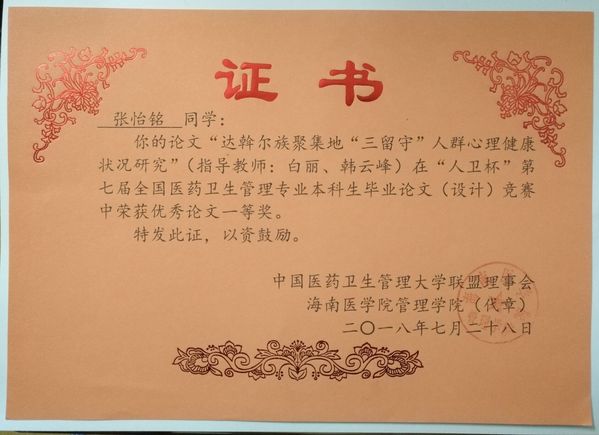 证书
张怡铭 同学：
你的论文“达斡尔族聚集地“三留守”人群心理健康
状况研究”（指导教师：白丽、韩云峰）在“人卫杯”第
七届全国医药卫生管理专业本科生毕业论文（设计）竞赛
中荣获优秀论文一等奖。
特发此证，以资鼓励。
中国医药卫生管理大学联盟理事会
海南医学院管理学院（代章）
二〇一八年七月二十八日